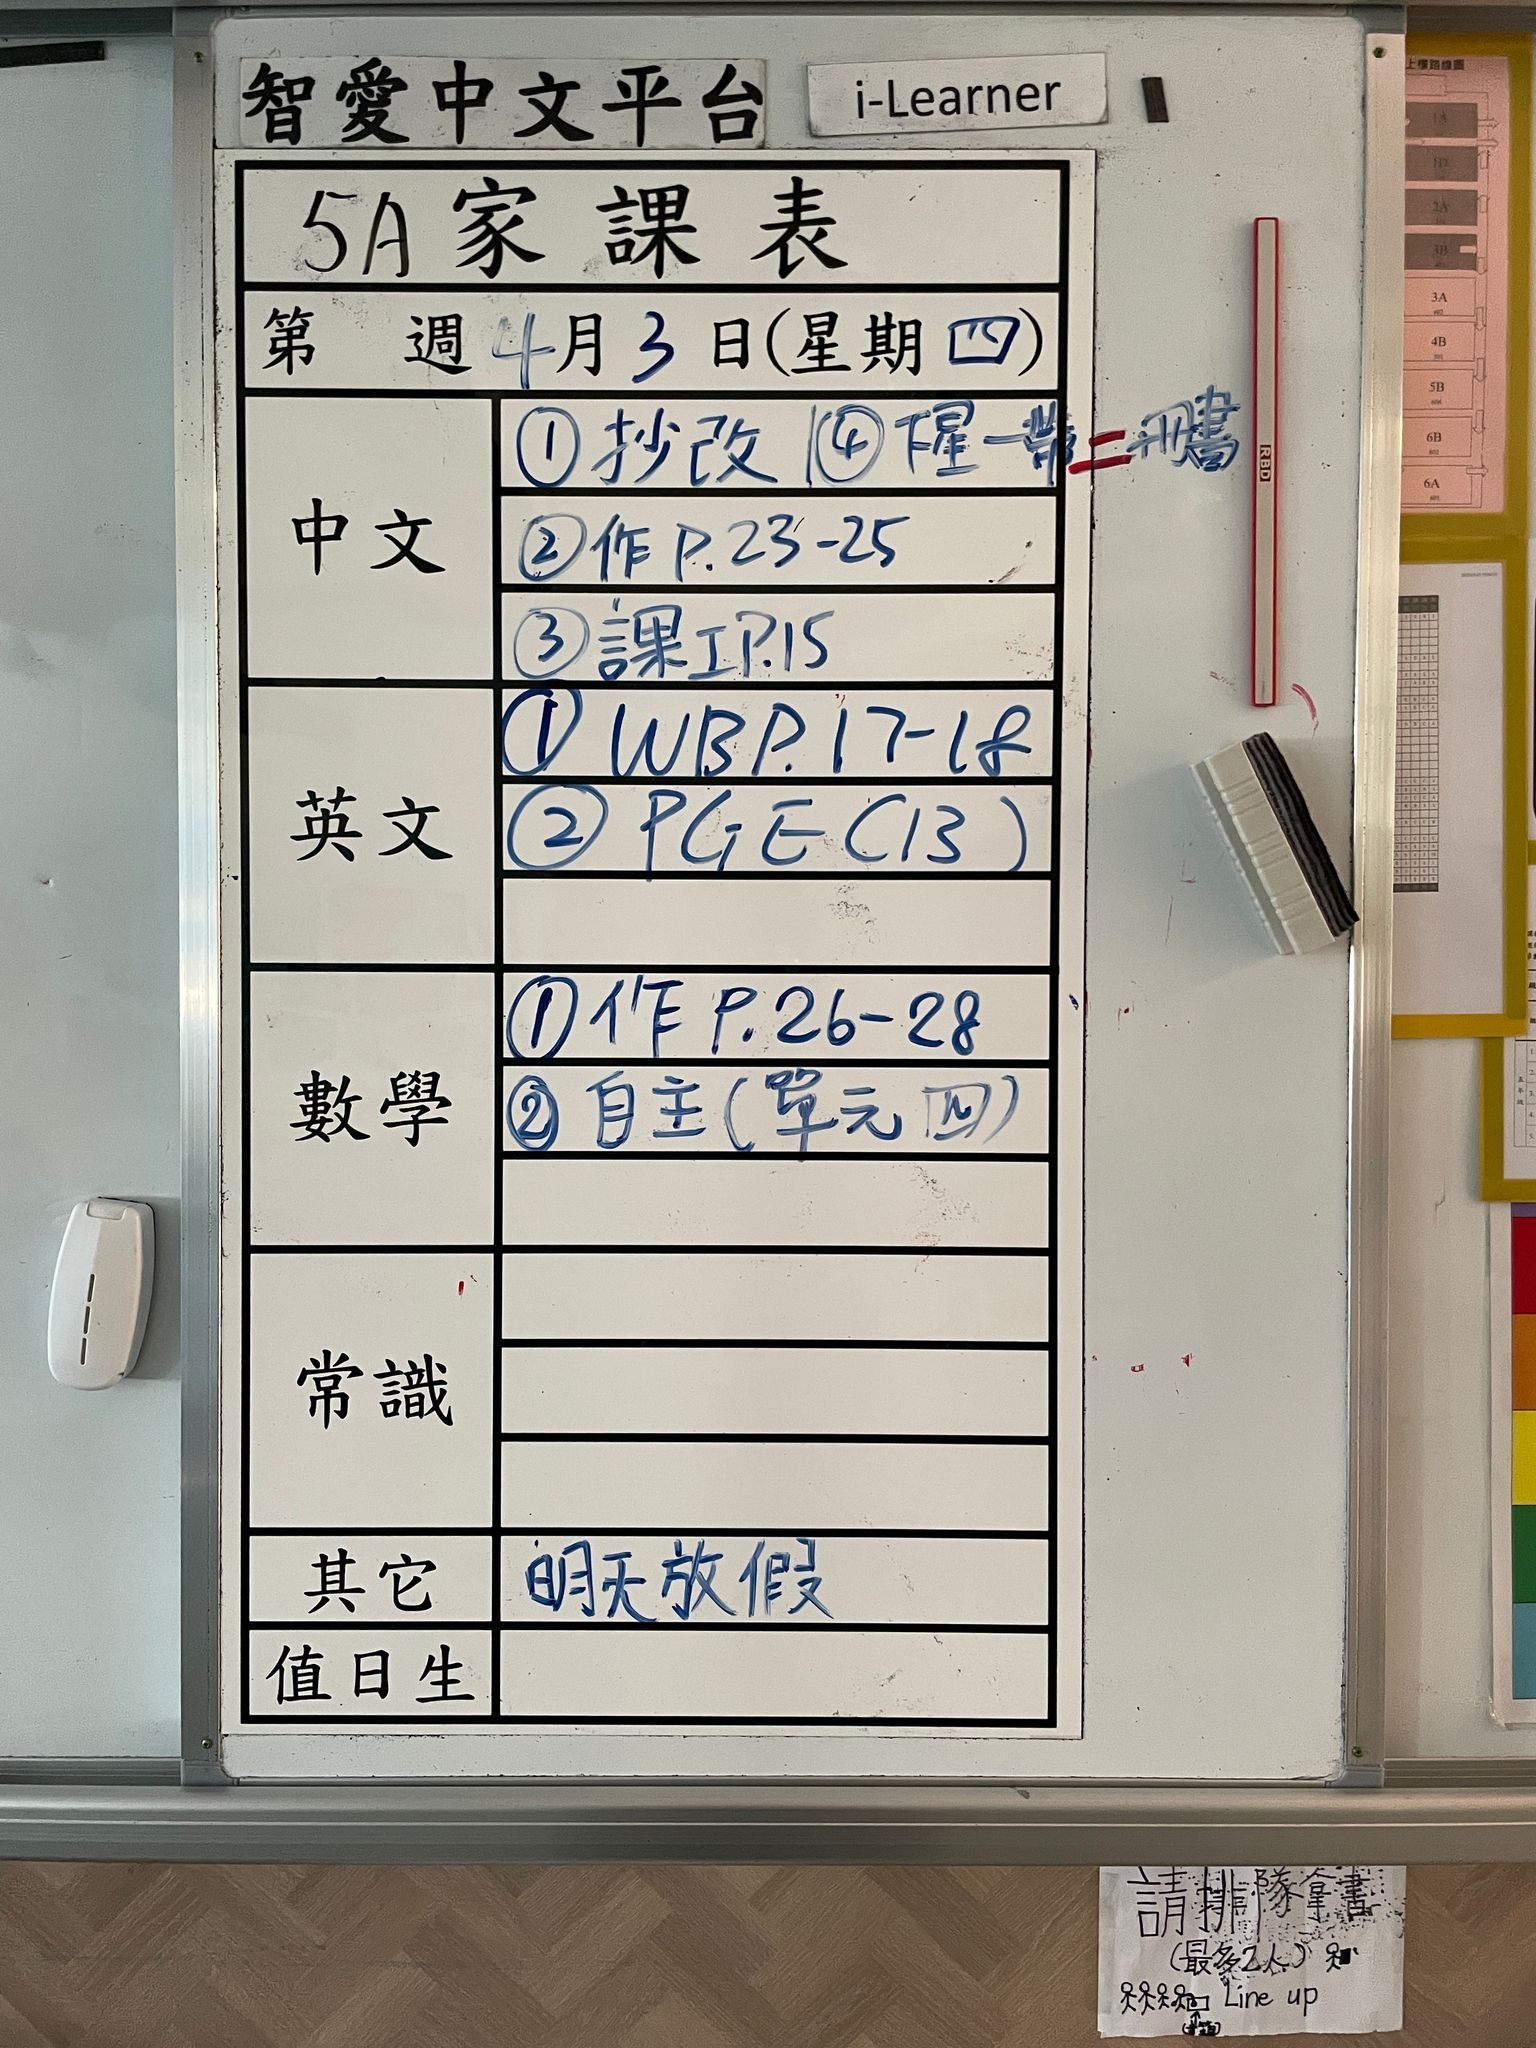 智愛中文平台 i-Learner
5A 家課表
第 週 4月3日(星期四)
中文
①抄改 ④下星一帶二冊書
②作 P.23-25
③課工P.15
英文
① WB P.17-18
② PGE (13)
數學
①作 P.26-28
②自主(單元四)
常識
其它 明天放假
值日生
RBD
上樓路線圖
1A
2A
3B
3A
4B
5B
6B
6A
請排隊拿書
(最多2人)
Line up